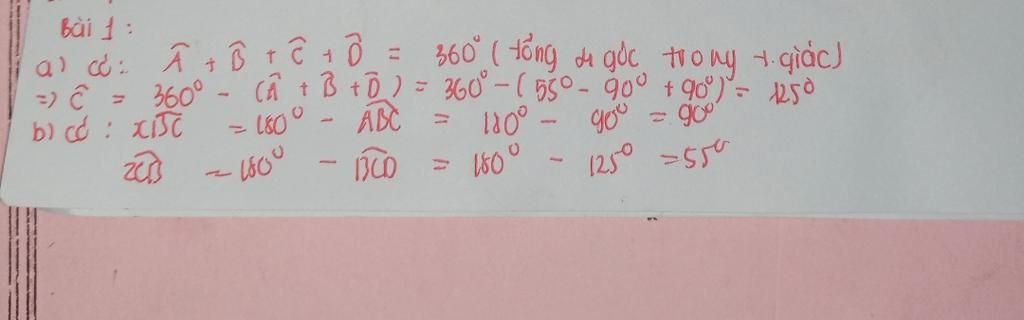 Bài 1:
a) có: Â + B̂ + Ĉ + D̂ = 360° (tổng 4 góc trong t.giác)
=) Ĉ = 360° - (Â + B̂ + D̂) = 360° - (55° - 90° + 90°) = 125°
b) có: xBC = 180° - ABC = 180° - 90° = 90°
zCB = 180° - BCD = 180° - 125° = 55°